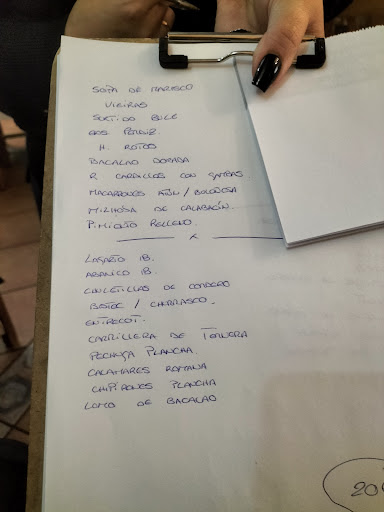 SOPA DE MARISCO
VIEIRAS
SURTIDO IBLE
H. ROTOS
BACALAO DORADA
R. CARDILLOS CON GAMBAS
MACARRONES / BOLOÑESA
MILHOJA DE CALABACÍN.
PIMIENTO RELLENO.
X
LAGARTO IB.
ABANICO IB.
CHULETILLAS DE CORDERO
BISTEC / CHURRASCO.
ENTRECOT.
CARRILLERA DE TERNERA
PECHUGA PLANCHA.
CALAMARES ROMANA
CHIPIRONES PLANCHA
LOMO DE BACALAO
20